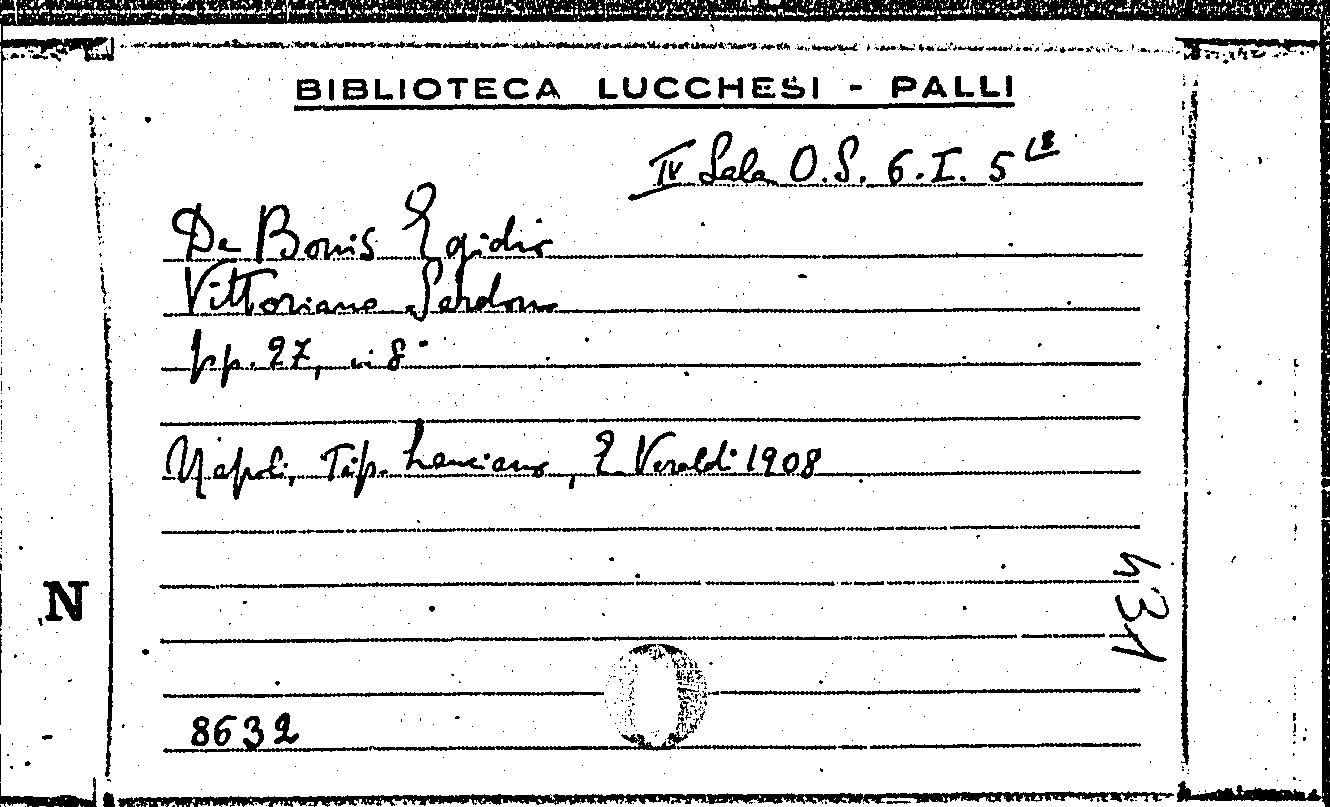 BIBLIOTECA LUCCHESI - PALLI
IV Sala O.S. 6.I. 5
De Bonis Egidio
Vittoriano Sardou
pp. 27, in 8°
Napoli, Tip. Lanciano, E Veraldi 1908
N
431
8632